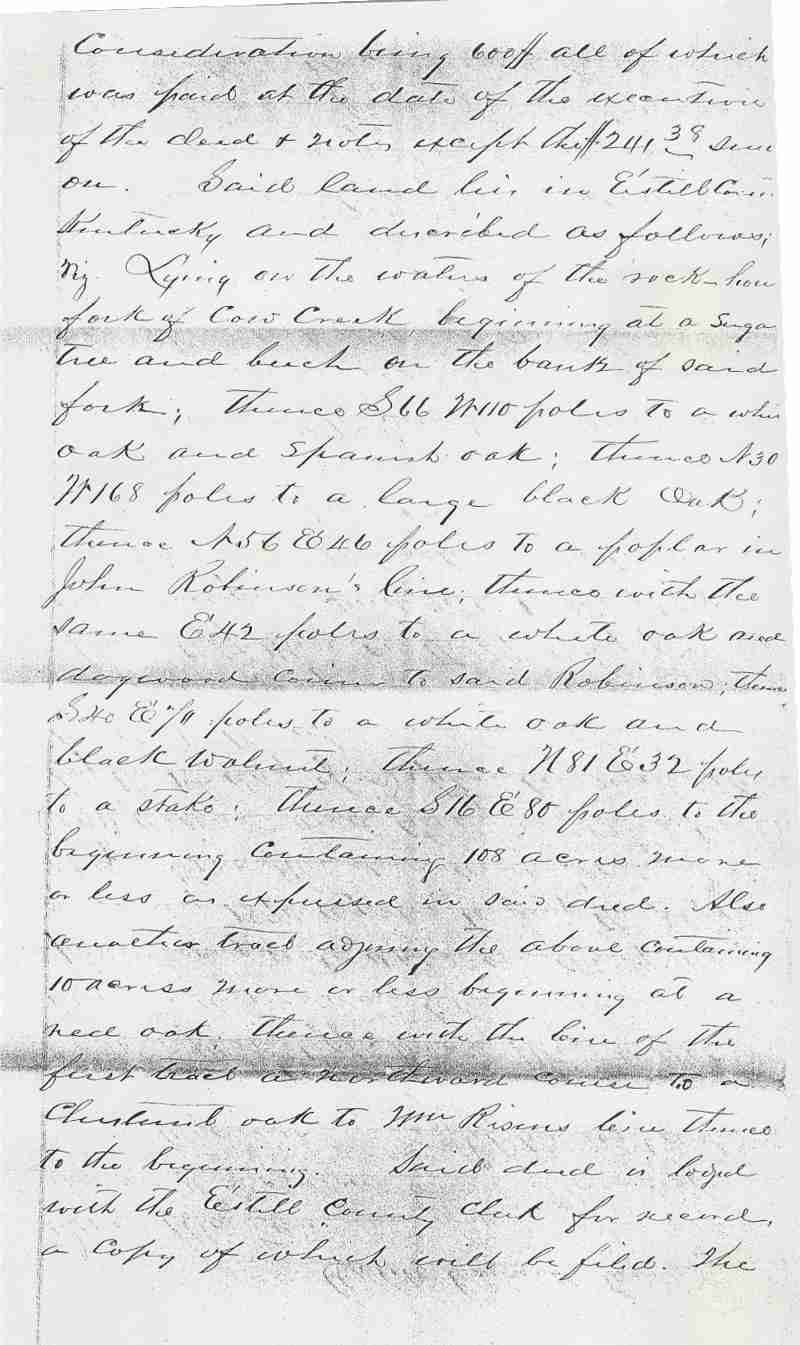 Consideration being 600$ all of which
was paid at the date of the execution
of the deed & notes except the $241.38 sued
on. Said land lies in Estill Coun
Kentucky and described as follows;
viz. Lying on the waters of the rock-hou
fork of Cow Creek, beginning at a Suga
tree and beech on the bank of said
fork; thence S66 W110 poles to a whi
oak and Spanish oak; thence N30
W168 poles to a large black Oak;
thence N56 E46 poles to a poplar in
John Robinson's line; thence with the
same E42 poles to a white oak and
dogwood corner to said Robinson; thence
S40 E poles to a white oak and
black Walnut; thence N81 E32 poles
to a stake; thence S16 E80 poles to the
beginning Containing 108 acres more
or less as expressed in said deed. Also
another tract adjoning the above containing
10 acres more or less beginning at a
red oak, thence with the line of the
first tract a northward course to a
Chestnut oak to Wm Risens line thence
to the beginning. Said deed is lodged
with the Estill County Clerk for record,
a Copy of which will be filed. The